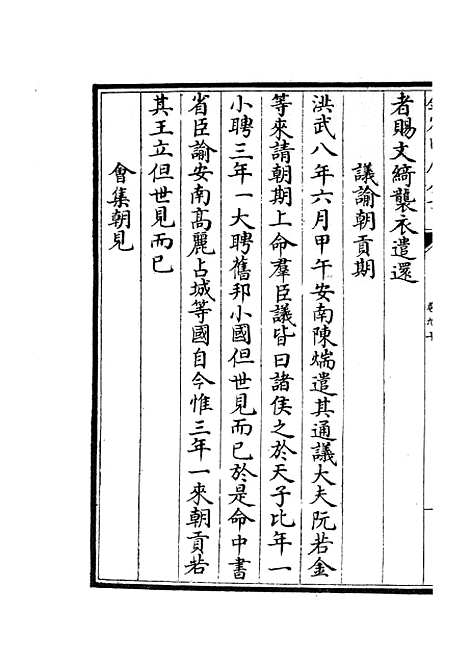 者賜文綺襲衣遣還
議諭朝貢期
洪武八年六月甲午安南陳煓遣其通議大夫阮若金
等來請朝期上命羣臣議皆曰諸侯之於天子比年一
小聘三年一大聘舊邦小國但世見而已於是命中書
省臣諭安南高麗占城等國自今惟三年一來朝貢若
其王立但世見而已
會集朝見